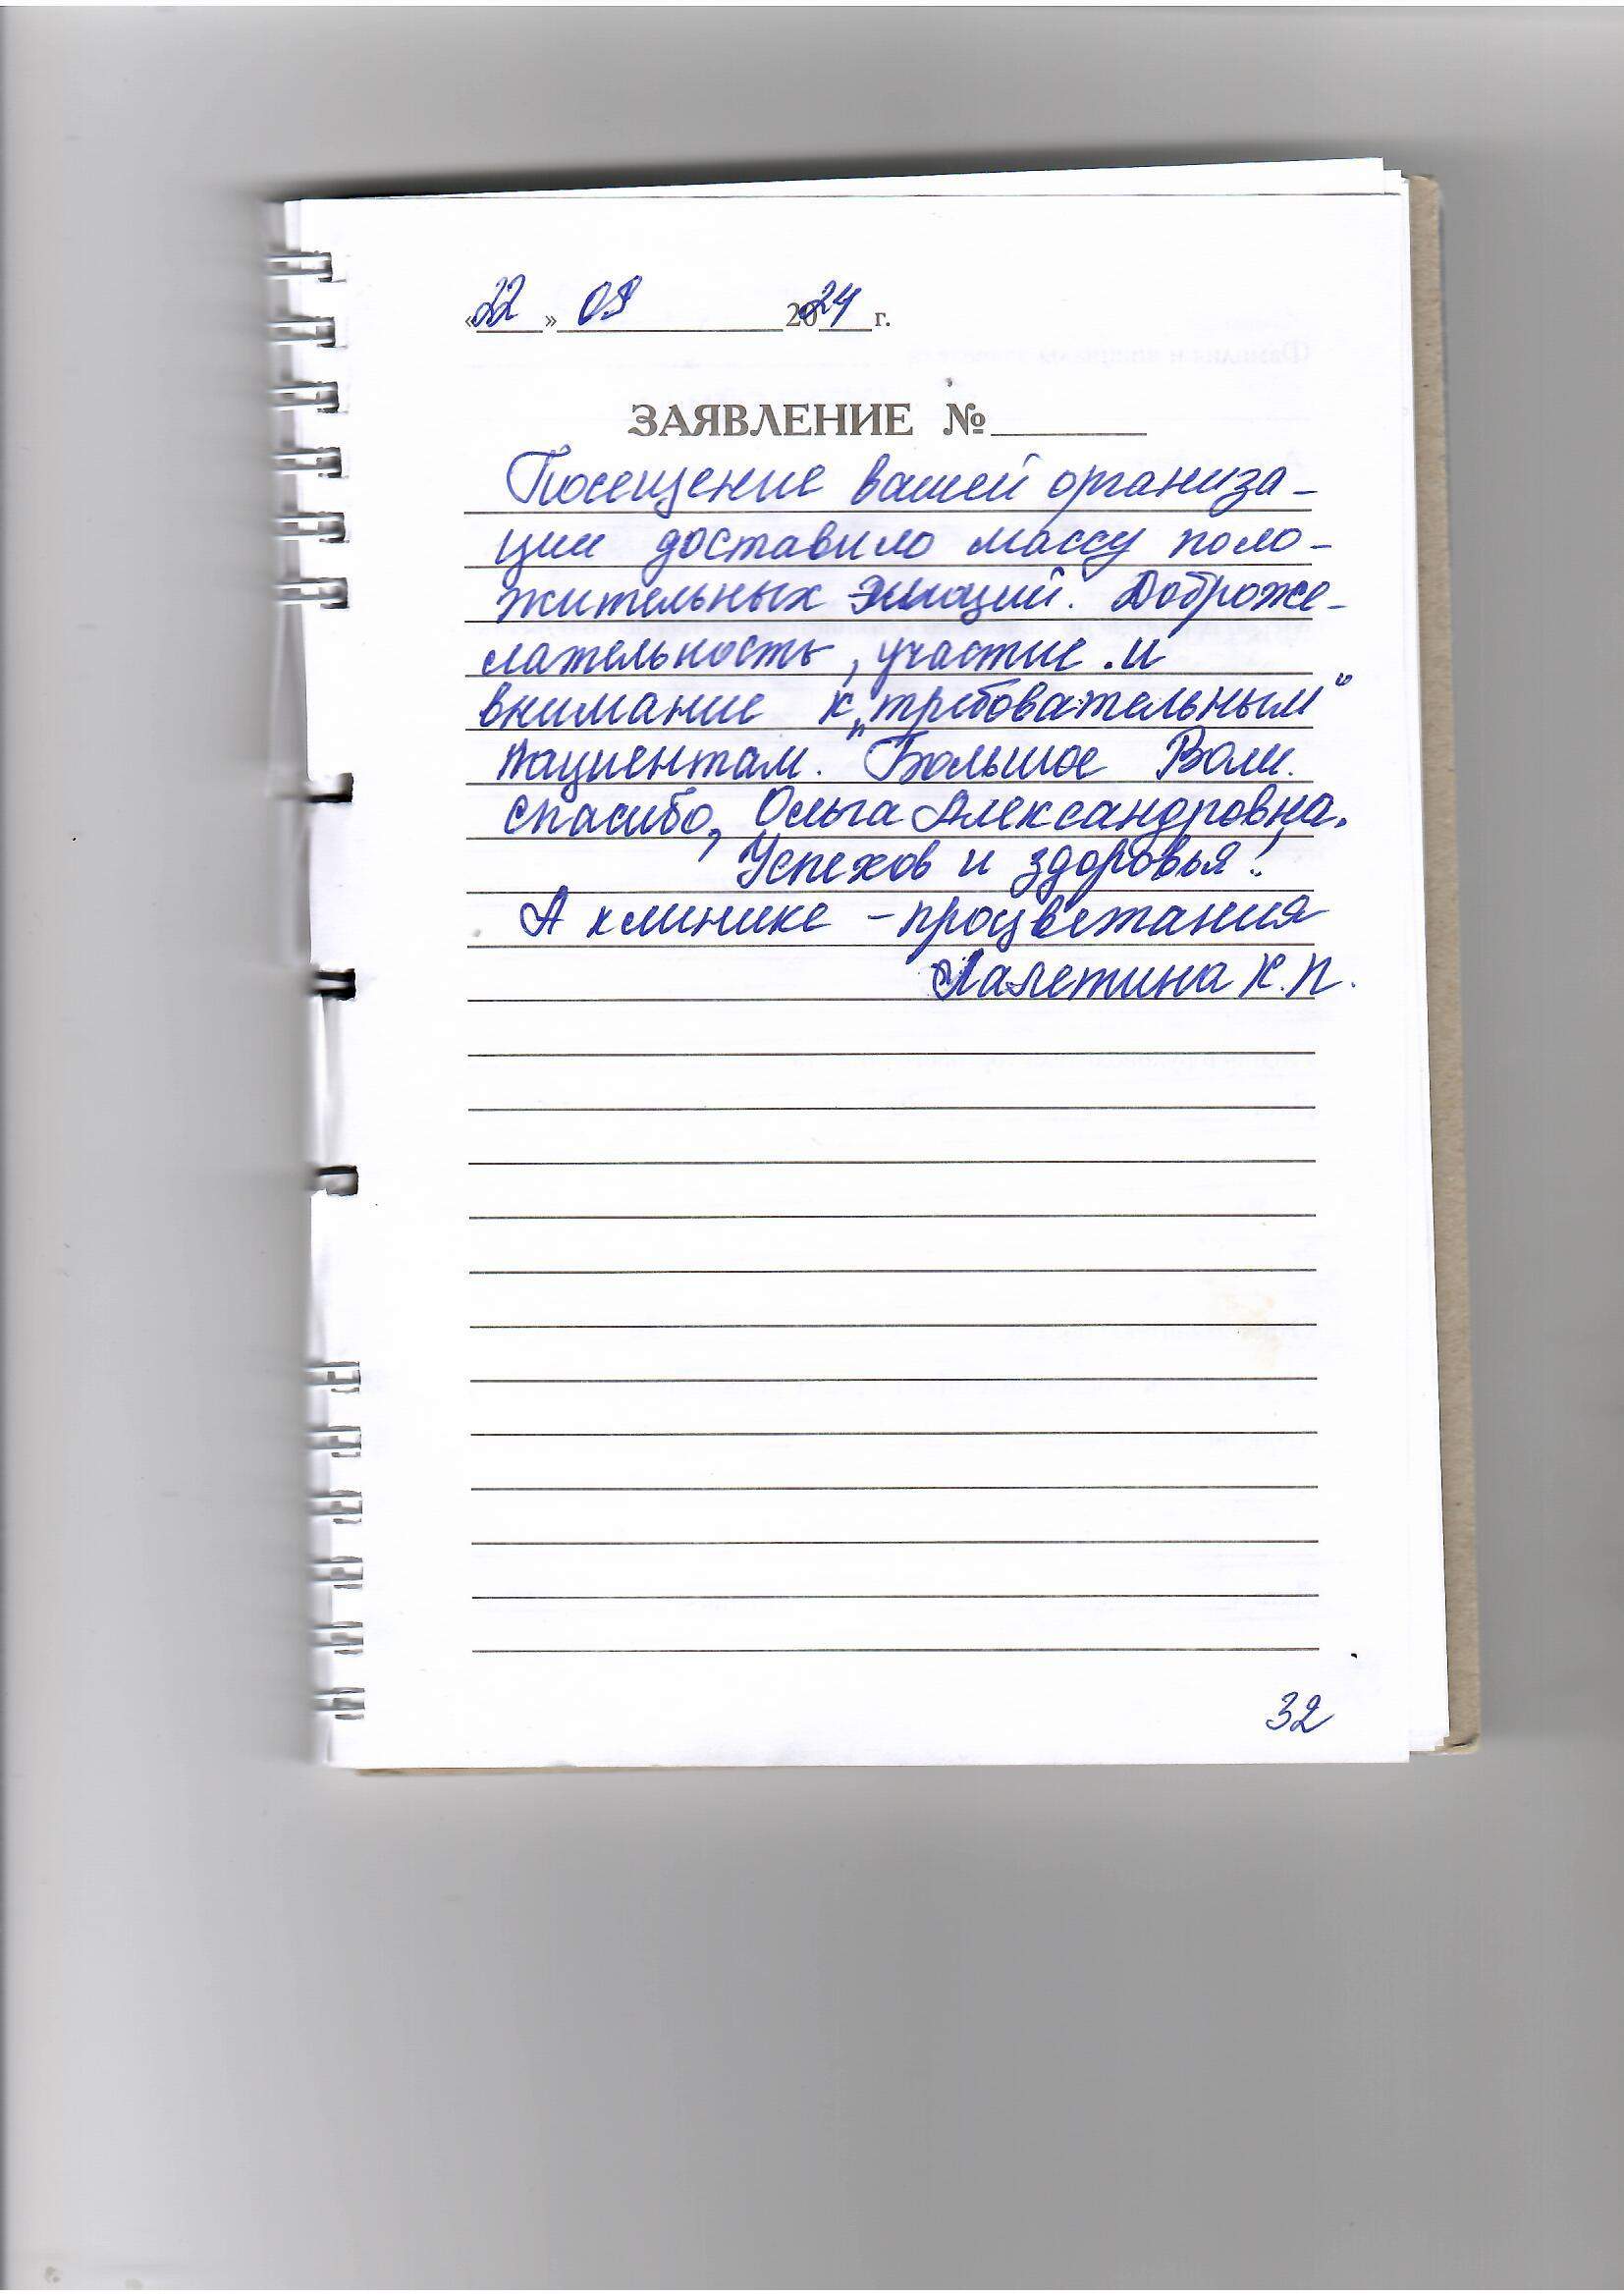 «22» 03 2024 г.
ЗАЯВЛЕНИЕ №
Посещение вашей организа-
ции доставило массу поло-
жительных эмоций. Доброже-
лательность, участие и
внимание к „требовательным“
пациентам. Большое Вам
спасибо, Ольга Александровна.
Успехов и здоровья!
А клинике - процветания
Лалетина К.П.
32